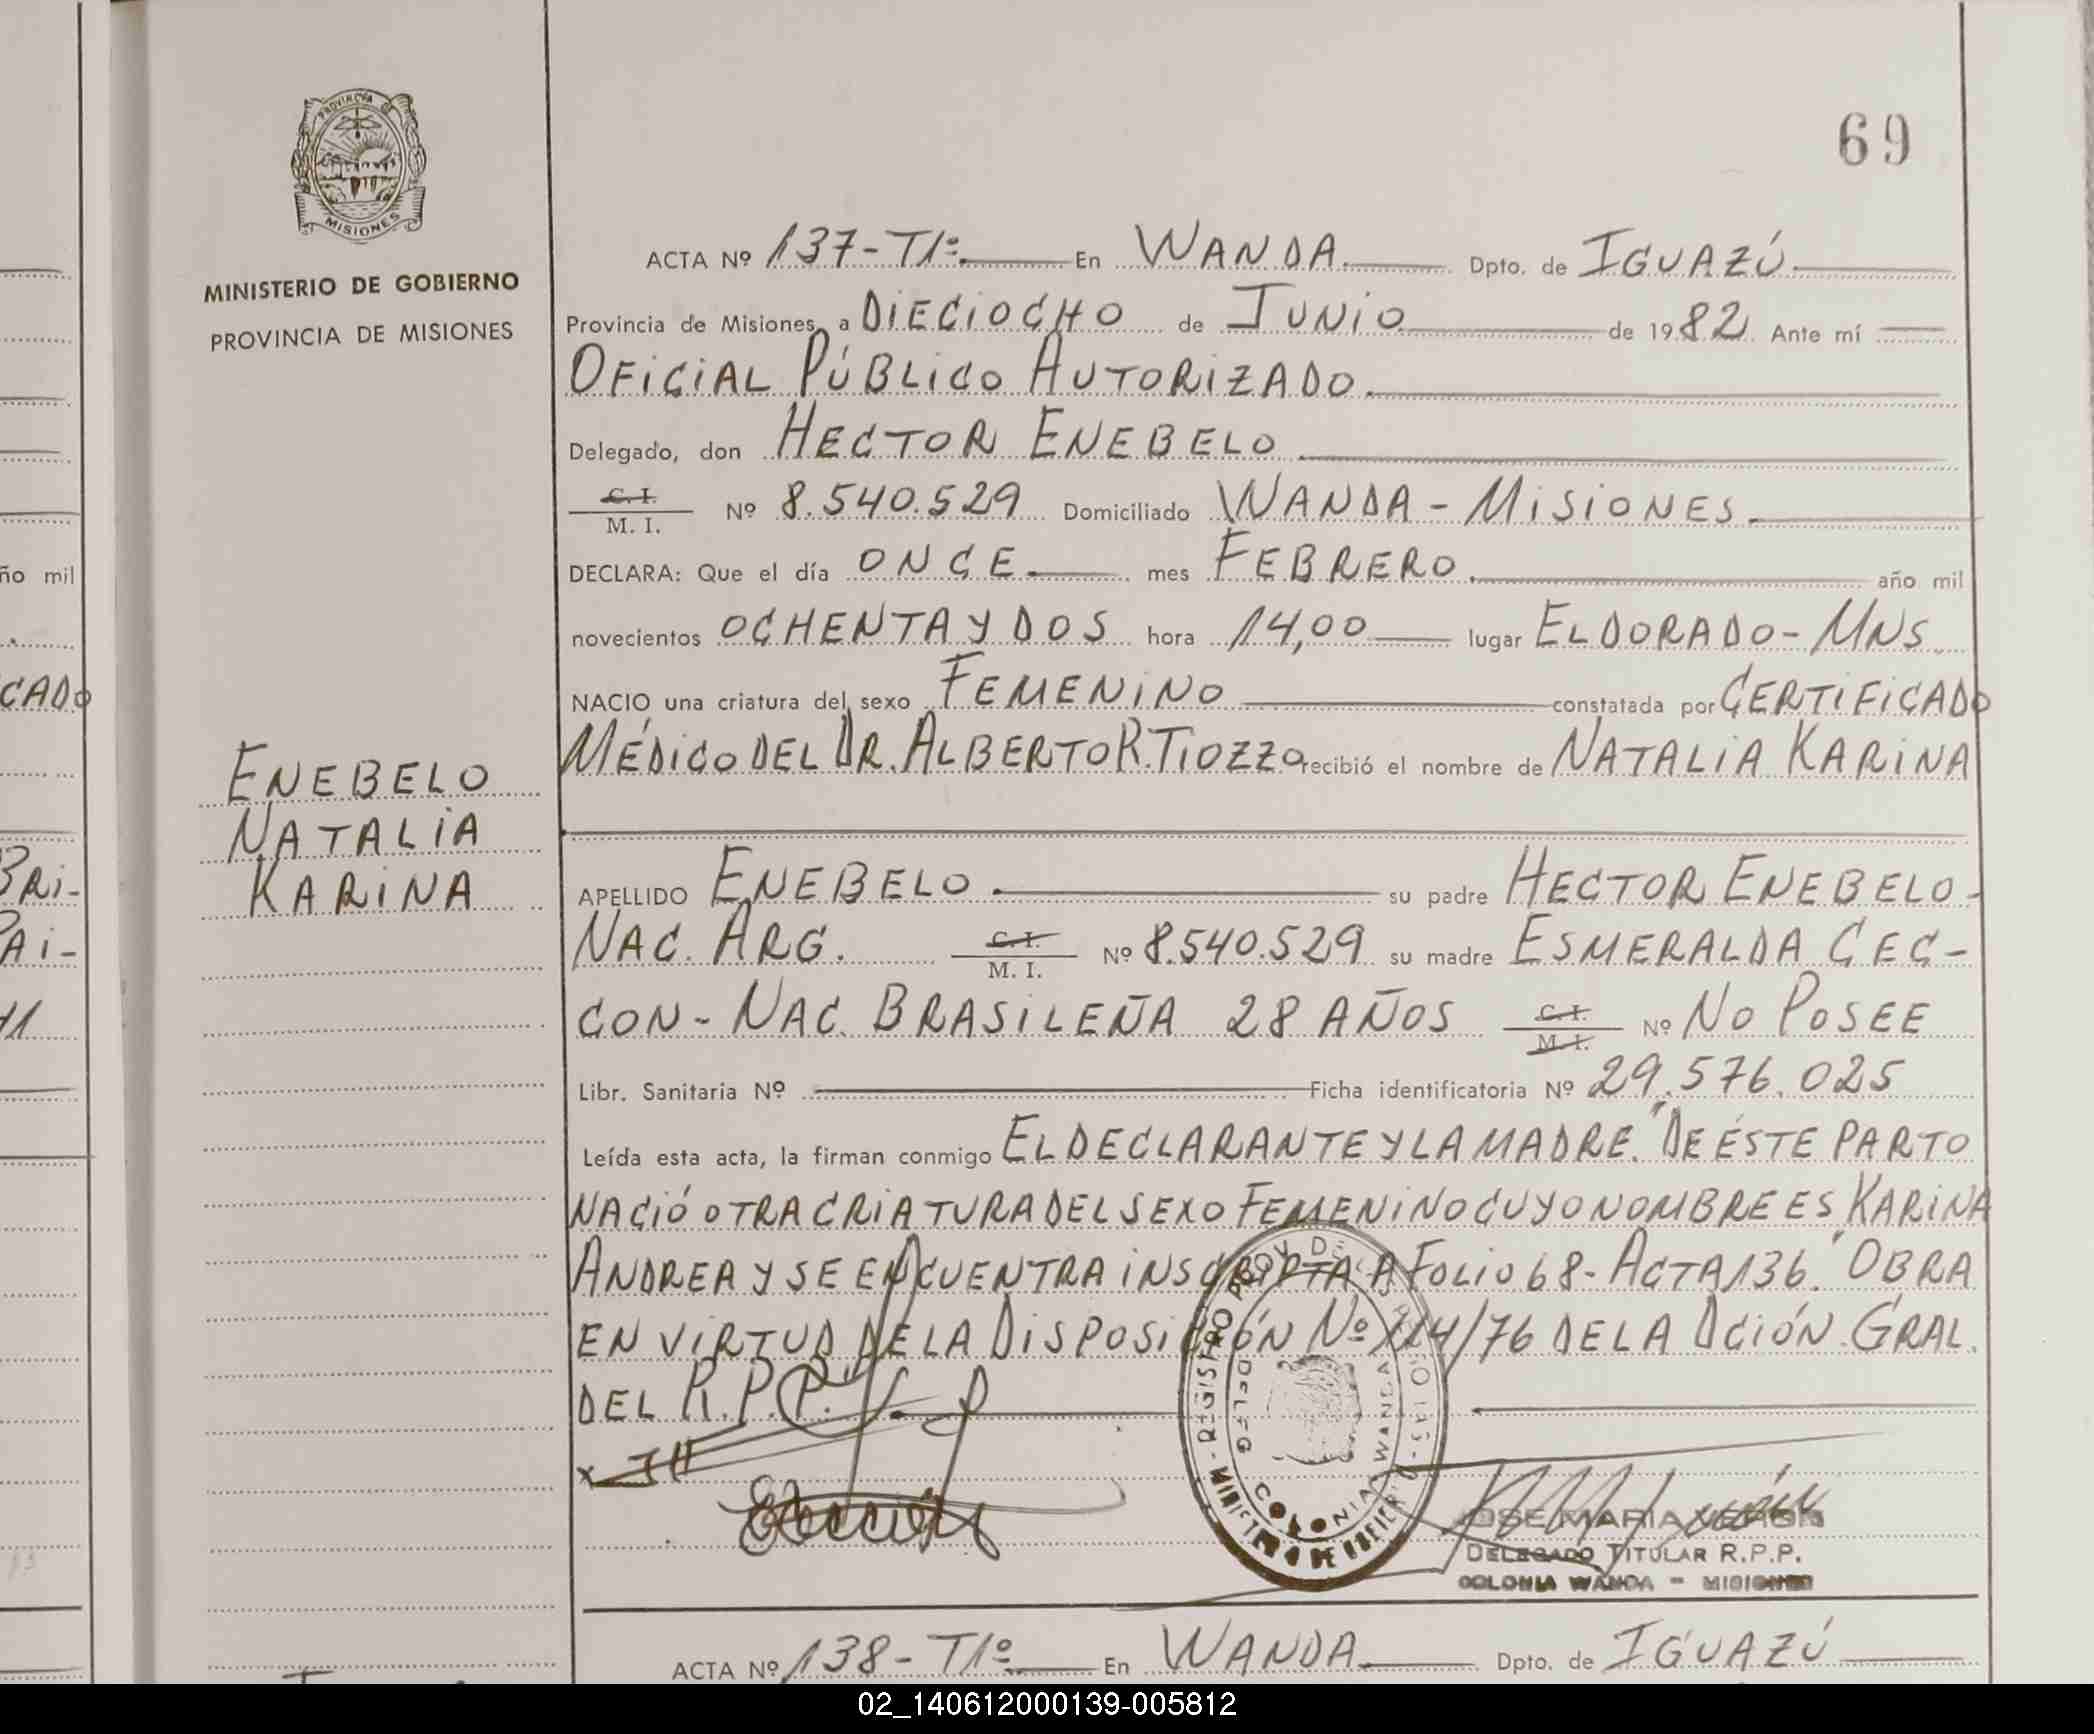 69
PROVINCIA DE
MISIONES
MINISTERIO DE GOBIERNO
PROVINCIA DE MISIONES
ACTA Nº 137-T1º. En WANDA. Dpto. de IGUAZÚ.
Provincia de Misiones, a DIECIOCHO de JUNIO de 1982. Ante mí
OFICIAL PÚBLICO AUTORIZADO.
Delegado, don HECTOR ENEBELO
C. I.
M. I. Nº 8.540.529 Domiciliado WANDA - MISIONES.
DECLARA: Que el día ONCE. mes FEBRERO. año mil
novecientos OCHENTA Y DOS hora 14,00 lugar ELDORADO - MNS.
NACIO una criatura del sexo FEMENINO constatada por CERTIFICADO
MÉDICO DEL DR. ALBERTO R. TIOZZO recibió el nombre de NATALIA KARINA
ENEBELO
NATALIA
KARINA
APELLIDO ENEBELO. su padre HECTOR ENEBELO-
NAC. ARG. C. I.
M. I. Nº 8.540.529 su madre ESMERALDA CEC-
CON - NAC. BRASILEÑA 28 AÑOS C. I.
M. I. Nº NO POSEE
Libr. Sanitaria Nº Ficha identificatoria Nº 29.576.025
Leída esta acta, la firman conmigo EL DECLARANTE Y LA MADRE. "DE ÉSTE PARTO
NACIÓ OTRA CRIATURA DEL SEXO FEMENINO CUYO NOMBRE ES KARINA
ANDREA Y SE ENCUENTRA INSCRIPTA A FOLIO 68 - ACTA 136." OBRA
EN VIRTUD DE LA DISPOSICIÓN Nº 114/76 DE LA DCIÓN. GRAL.
DEL R.P.P.
JOSE MARIA
DELEGADO TITULAR R.P.P.
COLONIA WANDA - MISIONES
ACTA Nº 138 - T1º. En WANDA. Dpto. de IGUAZÚ
ño mil
CADO
BRI-
PAI-
02_140612000139-005812